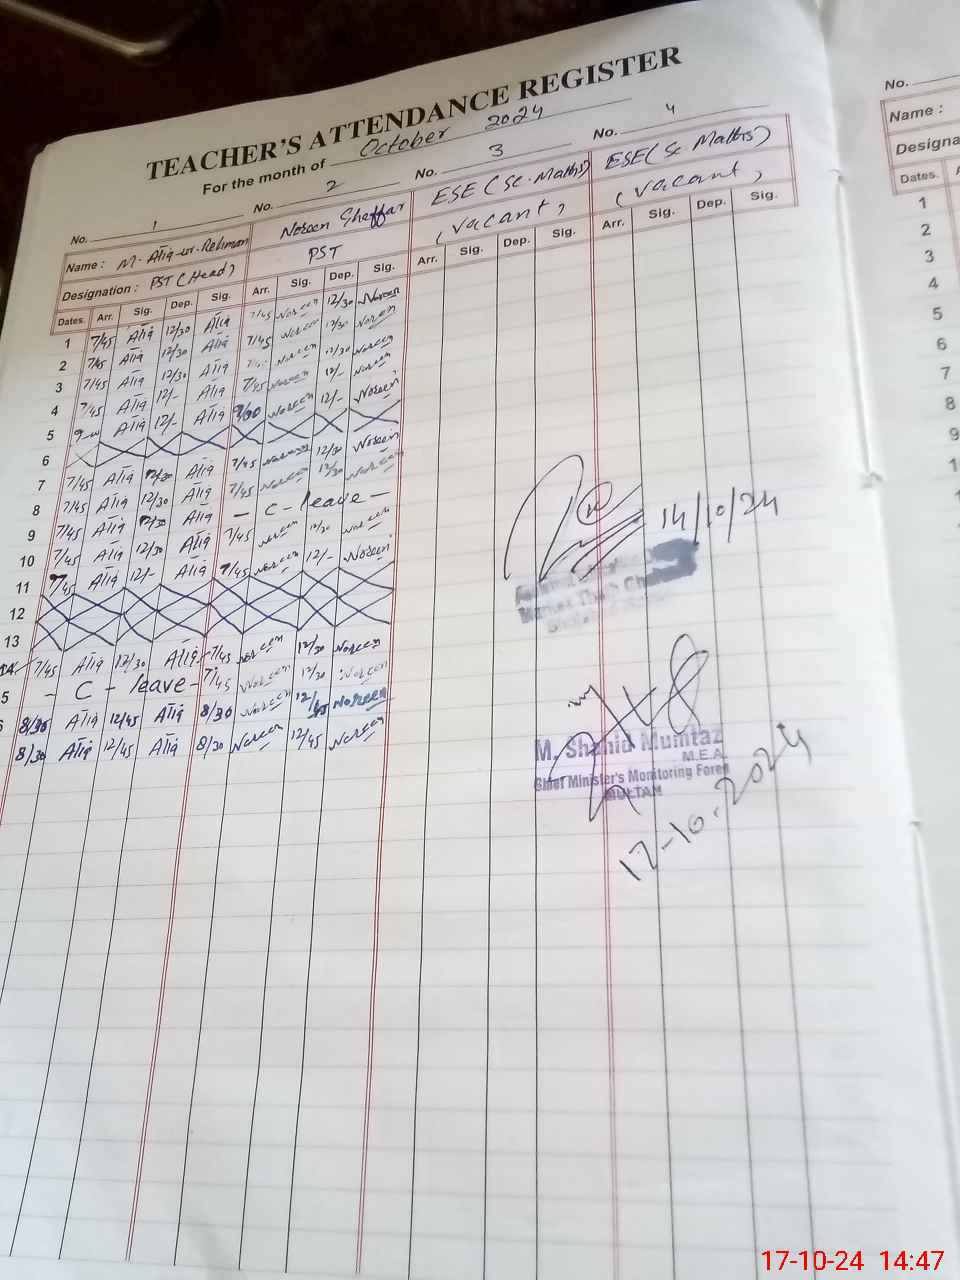 TEACHER'S ATTENDANCE REGISTER
For the month of October 2024
No. 1 No. 2 No. 3 No. 4
Name : M. Atiq-ur-Rehman Noreen Ghaffar ESE (Sc. Maths) ESE (Sc Maths)
Designation : PST (Head) PST (vacant) (vacant)
Dates. Arr. Sig. Dep. Sig. Arr. Sig. Dep. Sig. Arr. Sig. Dep. Sig. Arr. Sig. Dep. Sig.
1 7/45 Atiq 12/30 Atiq 7/45 Noreen 12/30 Noreen
2 7/45 Atiq 12/30 Atiq 7/45 Noreen 12/30 Noreen
3 7/45 Atiq 12/30 Atiq Noreen 12/30 Noreen
4 7/45 Atiq 12/- Atiq 7/45 Noreen 12/- Noreen
5 Atiq 12/- Atiq Noreen 12/- Noreen
6
7 7/45 Atiq 12/30 Atiq 7/45 Noreen 12/30 Noreen
8 7/45 Atiq 12/30 Atiq 7/45 Noreen 12/30 Noreen
9 7/45 Atiq 12/30 Atiq - C - leave -
10 7/45 Atiq 12/30 Atiq 7/45 Noreen 12/30 Noreen
11 7/45 Atiq 12/- Atiq 7/45 Noreen 12/- Noreen
12
13
14 7/45 Atiq 12/30 Atiq 7/45 Noreen 12/30 Noreen
5 - C - leave - 7/45 Noreen 12/30 Noreen
6 8/30 Atiq 12/45 Atiq 8/30 Noreen 12/45 Noreen
8/30 Atiq 12/45 Atiq 8/30 Noreen 12/45 Noreen
14/10/24
M. Shahid Mumtaz
M.E.A.
Chief Minister's Monitoring Force
MULTAN
17-10-2024
No.
Name :
Designa
Dates.
1
2
3
4
5
6
7
8
9
1
17-10-24 14:47